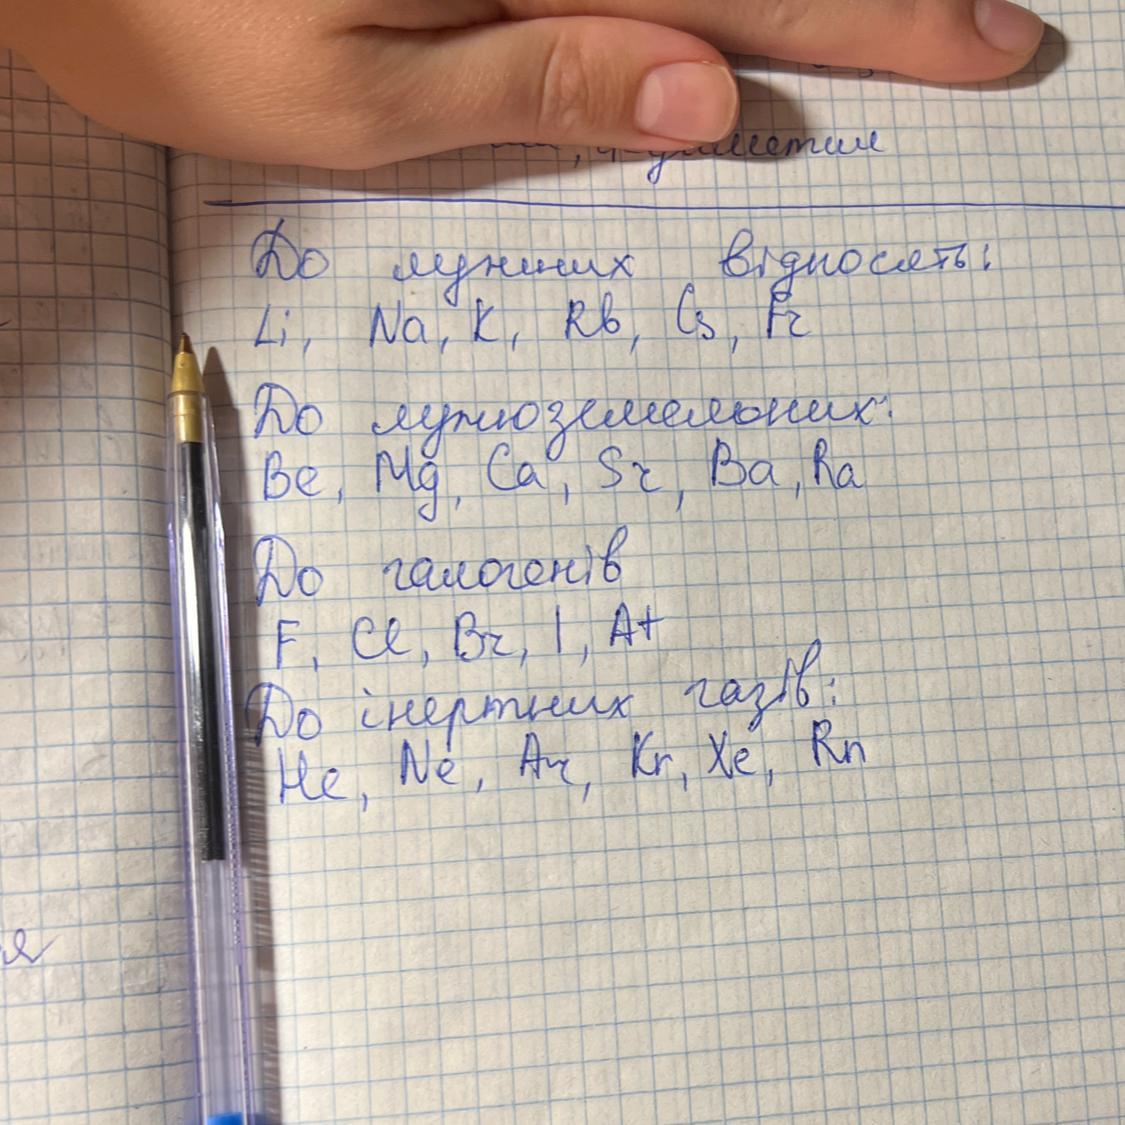 До лужних відносять:
Li, Na, K, Rb, Cs, Fr
До лужноземельних:
Be, Mg, Ca, Sr, Ba, Ra
До галогенів
F, Cl, Br, I, At
До інертних газів:
He, Ne, Ar, Kr, Xe, Rn